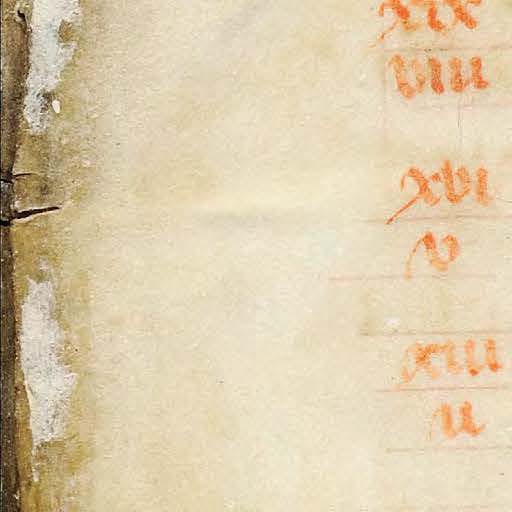 xix
viii
xvi
v
xiii
ii